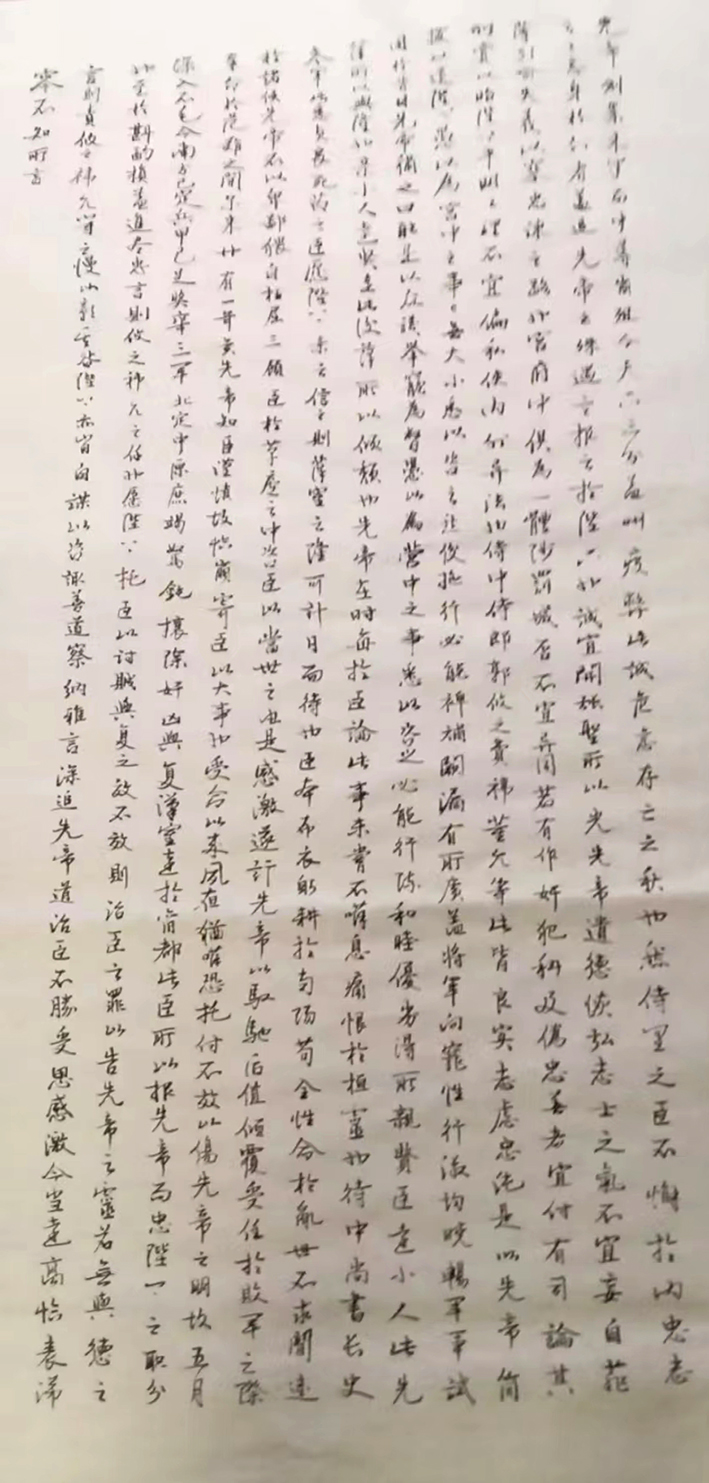 先帝創業未半而中道崩殂今天下三分益州疲弊此誠危急存亡之秋也然侍衛之臣不懈於內忠志
之士忘身於外者蓋追先帝之殊遇欲報之於陛下也誠宜開張聖聽以光先帝遺德恢弘志士之氣不宜妄自菲
薄引喻失義以塞忠諫之路也宮府中俱為一體陟罰臧否不宜異同若有作奸犯科及為忠善者宜付有司論其
刑賞以昭陛下平明之理不宜偏私使內外異法也侍中侍郎郭攸之費禕董允等此皆良實志慮忠純是以先帝簡
拔以遺陛下愚以為宮中之事事無大小悉以咨之然後施行必能裨補闕漏有所廣益將軍向寵性行淑均曉暢軍事試
用於昔日先帝稱之曰能是以眾議舉寵為督愚以為營中之事悉以咨之必能行陣和睦優劣得所親賢臣遠小人此先
漢所以興隆也親小人遠賢臣此後漢所以傾頹也先帝在時每於臣論此事未嘗不嘆息痛恨於桓靈也侍中尚書長史
參軍此悉貞良死節之臣願陛下親之信之則漢室之隆可計日而待也臣本布衣躬耕於南陽苟全性命於亂世不求聞達
於諸侯先帝不以卑鄙猥自枉屈三顧臣於草廬之中咨臣以當世之由是感激遂許先帝以馭馳後值傾覆受任於敗軍之際
奉命於危難之間爾來廿有一年矣先帝知臣謹慎故臨崩寄臣以大事也受命以來夙夜猶嘆恐托付不效以傷先帝之明故五月
深入不毛今南方已定兵甲已足獎率三軍北定中原庶竭駑鈍攘除奸凶興复漢室還於舊都此臣所以報先帝而忠陛下之職分
也至於斟酌損益進盡忠言則攸之禕允之任也願陛下托臣以討賊興复之效不效則治臣之罪以告先帝之靈若無興德之
言則責攸之禕允等之慢以彰其咎陛下亦宜自謀以咨諏善道察納雅言深追先帝遺詔臣不勝受恩感激今當遠離臨表涕
零不知所言